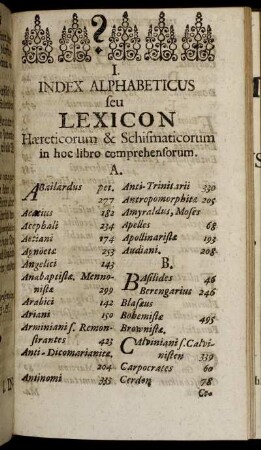 I.
INDEX ALPHABETICUS
seu
LEXICON
Hæreticorum & Schismaticorum
in hoc libro comprehensorum.
A.
ABailardus pet.
277
Acacius 182
Acephali 234
Aetiani 174
Agnoetæ 253
Angelici 143
Anabaptistæ Menno-
nistæ 299
Arabici 142
Ariani 150
Arminiani s. Remon-
strantes 423
Anti-Dicomarianitæ.
204
Antinomi 333
Anti-Trinitarii 330
Antropomorphitæ 205
Amyraldus, Moses
Apelles 68
Apollinaristæ 193
Audiani. 208
B.
BAsilides 46
Berengarius 246
Blasæus
Bohemistæ 495
Brownistæ.
CAlviniani s. Calvi-
nisten 339
Carpocrates 60
Cerdon 78
Ce-